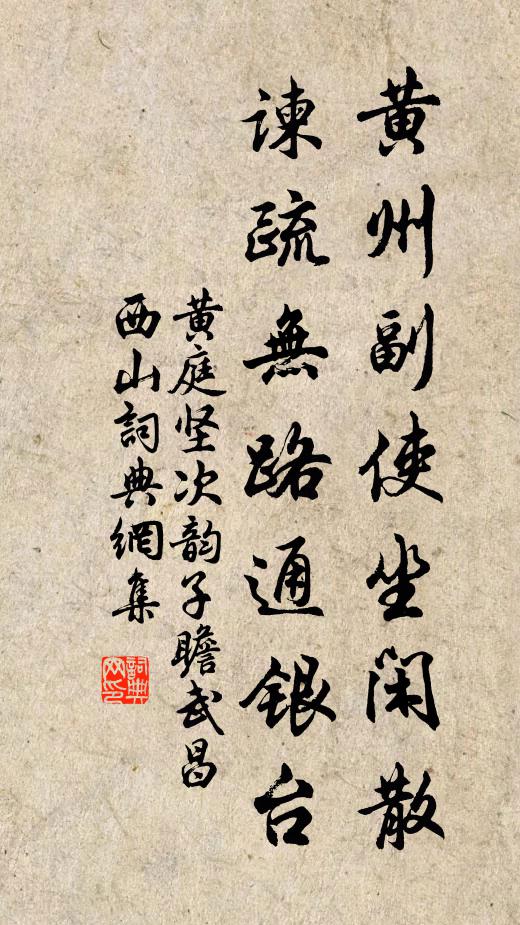 黄州副使坐闲散
諫疏無路通银台
黄庭坚次韵子瞻武昌
西山詞典網集
詞典网印